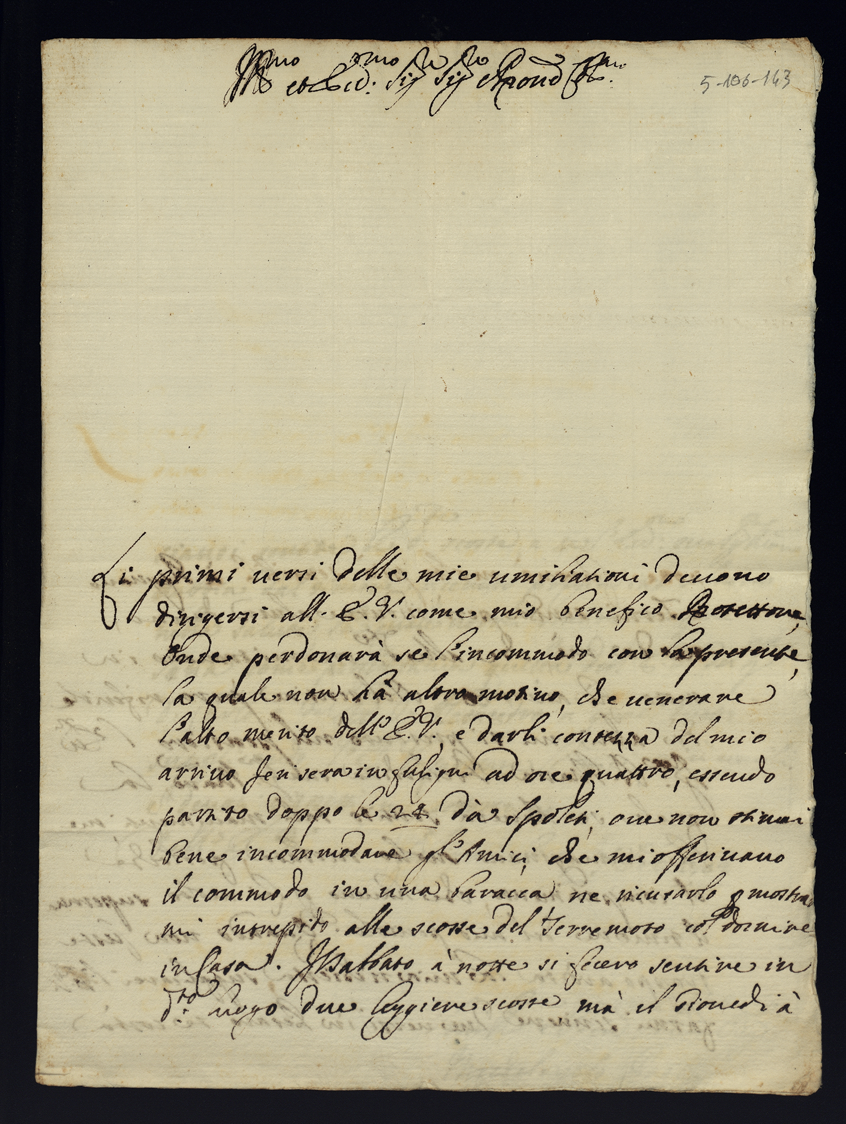 Ill.mo et Ecc.mo Sig.re Sig.re Pron Col.mo
5-106-143
Li primi versi delle mie umiliationi devono
dirigersi all. E. V. come mio benefico Protettore,
Onde perdonarà se l'incommodo con la presente,
la quale non hà altro motivo, che venerare
l'alto merito dell' E. V., e darli contezza del mio
arrivo Jeri sera in Fuligni ad ore quattro, essendo
partito doppo le 22. dà Spoleti, ove non stimai
bene incommodare gl'Amici, che mi offerivano
il commodo in una baracca ne ricusarlo p mostrar
mi intrepido alle scosse del Terremoto col dormire
in Casa. Jl Sabbato à notte si fecero sentire in
d.to luogo due leggiere scosse mà il Giovedi à